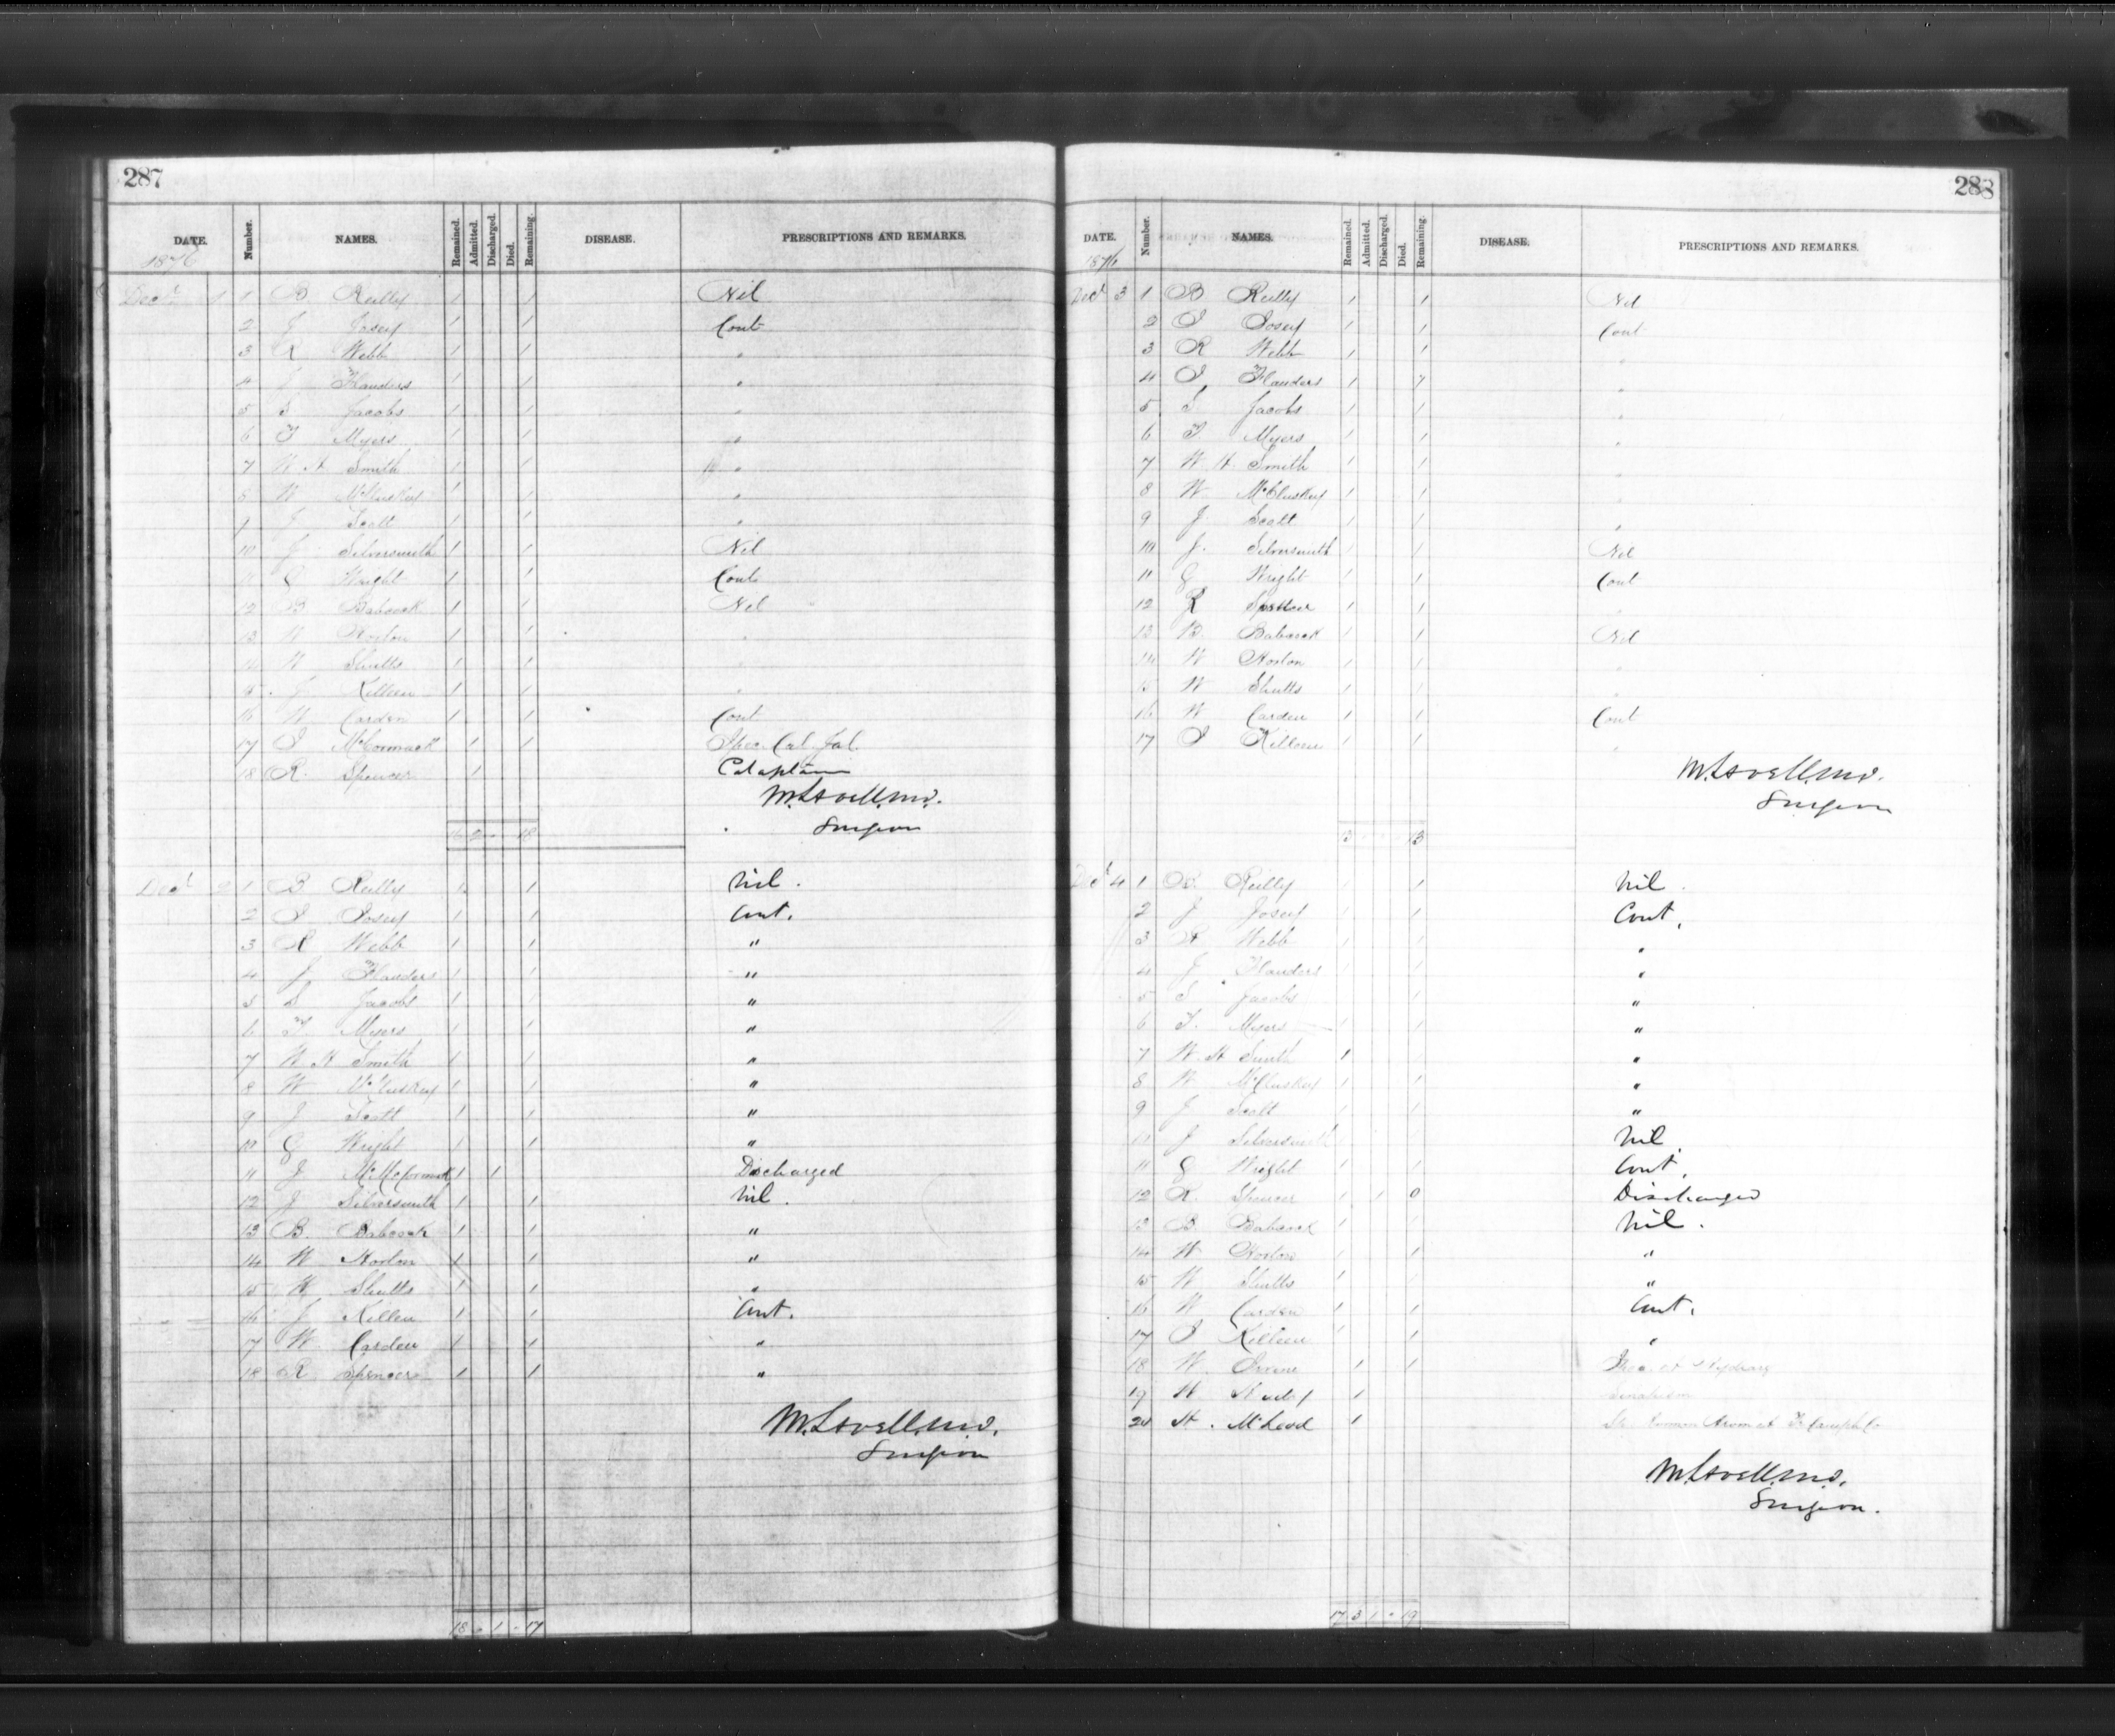 287
DATE. Number. NAMES. Remained. Admitted. Discharged. Died. Remaining. DISEASE. PRESCRIPTIONS AND REMARKS.
1876
Decr 1 1 B Reilly 1 1 Nil
2 J Josey 1 1 Cont
3 R Webb 1 1 "
4 J Flanders 1 1 "
5 S Jacobs 1 1 "
6 T Myers 1 1 "
7 W H Smith 1 1 "
8 W McCluskey 1 1 "
9 J Scott 1 1 "
10 J Silversmith 1 1 Nil
11 G Wright 1 1 Cont
12 B Babcock 1 1 Nil
13 W Horton 1 1 "
14 W Shutts 1 1 "
15 J Killeen 1 1 "
16 W Carden 1 1 Cont
17 J McCormack 1 1 Ipec. Cal. Jal.
18 R. Spencer 1 Cataplasm
M. Lavell. M.D.
Surgeon
16 2 - - 18
Decr 2 1 B. Reilly 1 1 Nil.
2 J Josey 1 1 Cont.
3 R Webb 1 1 "
4 J Flanders 1 1 "
5 S Jacobs 1 1 "
6 T. Myers 1 1 "
7 W H Smith 1 1 "
8 W McCluskey 1 1 "
9 J Scott 1 1 "
10 G Wright 1 1 "
11 J 1 1 Discharged
12 J Silversmith 1 1 Nil.
13 B. Babcock 1 1 "
14 W Horton 1 1 "
15 W Shutts 1 1 "
16 J Killen 1 1 Cont.
17 W. Carden 1 1 "
18 R Spencer 1 1 "
M. Lavell. M.D.
Surgeon
18 - 1 - 17
288
DATE. Number. NAMES. Remained. Admitted. Discharged. Died. Remaining. DISEASE. PRESCRIPTIONS AND REMARKS.
1876
Decr 3 1 B Reilly 1 1 Nil
2 J Josey 1 1 Cont
3 R Webb 1 1 "
4 J Flanders 1 1 "
5 S Jacobs 1 1 "
6 T Myers 1 1 "
7 W H. Smith 1 1 "
8 W McCluskey 1 1 "
9 J. Scott 1 1 "
10 J. Silversmith 1 1 Nil
11 G Wright 1 1 Cont
12 R Spencer 1 1 "
13 B. Babcock 1 1 Nil
14 W Horton 1 1 "
15 W Shutts 1 1 "
16 W Carden 1 1 Cont
17 J Killeen 1 1 "
M. Lavell. M.D.
Surgeon
13 - - - 13
Decr 4 1 B. Reilly 1 1 Nil.
2 J Josey 1 1 Cont.
3 R Webb 1 1 "
4 J Flanders 1 1 "
5 S Jacobs 1 1 "
6 T. Myers 1 1 "
7 W. H Smith 1 1 "
8 W McCluskey 1 1 "
9 J Scott 1 1 "
10 J Silversmith 1 1 Nil.
11 G Wright 1 1 Cont.
12 R. Spencer 1 1 0 Discharged
13 B. Babcock 1 1 Nil.
14 W Horton 1 1 "
15 W Shutts 1 1 "
16 W Carden 1 1 Cont.
17 J Killeen 1 1 "
18 W. 1 1
19 W 1
20 A. McLeod 1
M. Lavell. M.D.
Surgeon.
17 3 1 - 19